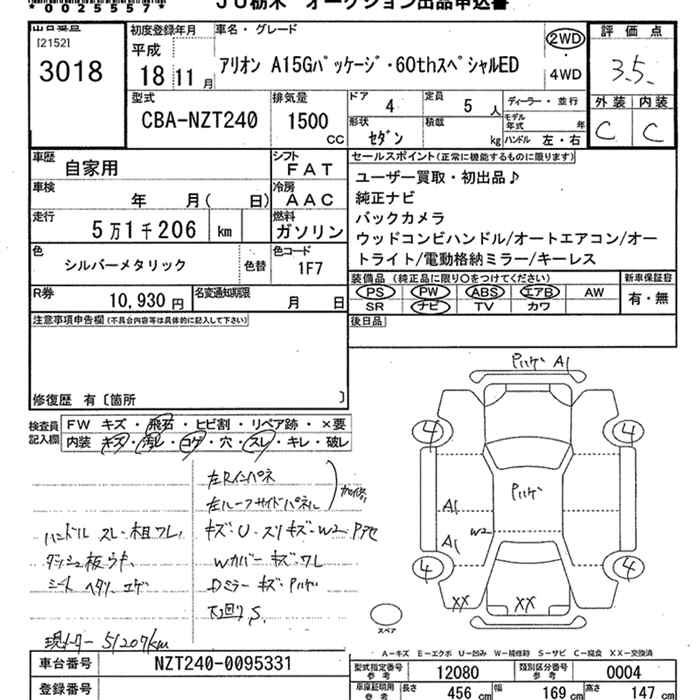 *0025557*
JU栃木 オークション出品申込書
[2152]
3018
初度登録年月
平成
18 11 月
車名・グレード
アリオン A15Gパッケージ・60thスペシャルED
2WD
・
4WD
評価点
3.5
外装 内装
C C
型式
CBA-NZT240
排気量
1500
CC
ドア
4
定員
5 人
形状
セダン
積載
kg
ディーラー・並行
モデル年式 年
ハンドル 左・右
車歴
自家用
シフト
FAT
車検
年 月( 日)
冷房
AAC
走行
5万1千206 km
燃料
ガソリン
色
シルバーメタリック
色替
色コード
1F7
R券
10,930 円
名変通知期限
月 日
セールスポイント(正常に機能するものに限ります)
ユーザー買取・初出品♪
純正ナビ
バックカメラ
ウッドコンビハンドル/オートエアコン/オー
トライト/電動格納ミラー/キーレス
装備品 (純正品に限り○をつけてください)
PS PW ABS エアB AW
SR ナビ TV カワ
新車保証書
有・無
後日品
注意事項申告欄(不具合内容等は具体的に記入して下さい)
修復歴 有〔箇所 〕
検査員
記入欄
FW キズ・飛石・ヒビ割・リペア跡・×要
内装 キズ・汚れ・コゲ・穴・スレ・キレ・破レ
左Rインパネ
左ルーフサイドパネル
ハンドル スレ・粗ワレ
キズ・U・スリキズ・W2・Pアセ
Wカバー キズ・ワレ
シート ヘタリ コゲ
Dミラー キズ・Pハゲ
下回りS
現メーター 51207km
Pハゲ A1
4 4
Pハゲ
A1
W2
A1
4 4
XX XX
スペア
A-キズ E-エクボ U-凹み W-補修跡 S-サビ C-腐食 XX-交換済
車台番号
NZT240-0095331
登録番号
型式指定番号
参考
12080
類別区分番号
参考
0004
車庫証明用
参考
長さ 456 cm 幅 169 cm 高さ 147 cm